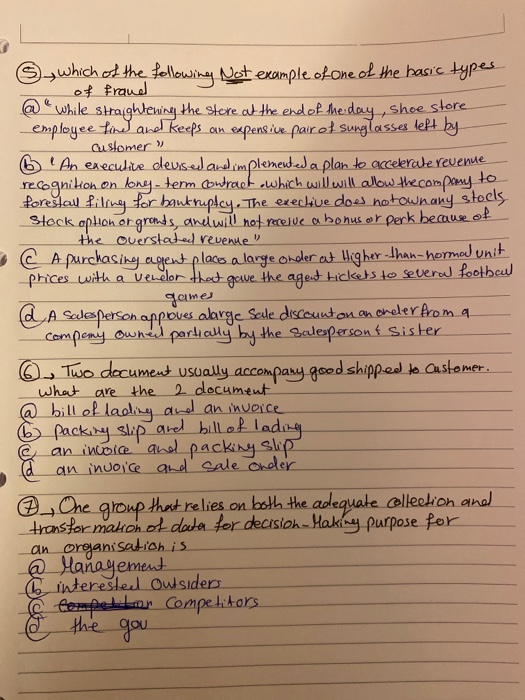 ⑤ → which of the following Not example of one of the basic types
of fraud
ⓐ " while straightening the store at the end of the day, shoe store
employee find and keeps an expensive pair of sunglasses left by
customer "
ⓑ " An executive devised and implemented a plan to accelerate revenue
recognition on long-term contract. which will will allow the company to
forestall filing for bankruptcy. The exective does not own any stocks,
stock option or grants, and will not receive a bonus or perk because of
the overstated revenue "
ⓒ A purchasing agent places a large order at Higher-than-normal unit
prices with a vendor that gave the agent tickets to several football
games
ⓓ A Salesperson approves a large sale discount on an order from a
company owned partially by the salesperson's sister
⑥ → Two document usually accompany good shipped to customer.
what are the 2 document
ⓐ bill of lading and an invoice
ⓑ packing slip and bill of lading
ⓒ an invoice and packing slip
ⓓ an invoice and sale order
⑦ → One group that relies on both the adequate collection and
transformation of data for decision-Making purpose for
an organisation is
ⓐ Management
ⓑ interested outsiders
ⓒ competitors
ⓓ the gov